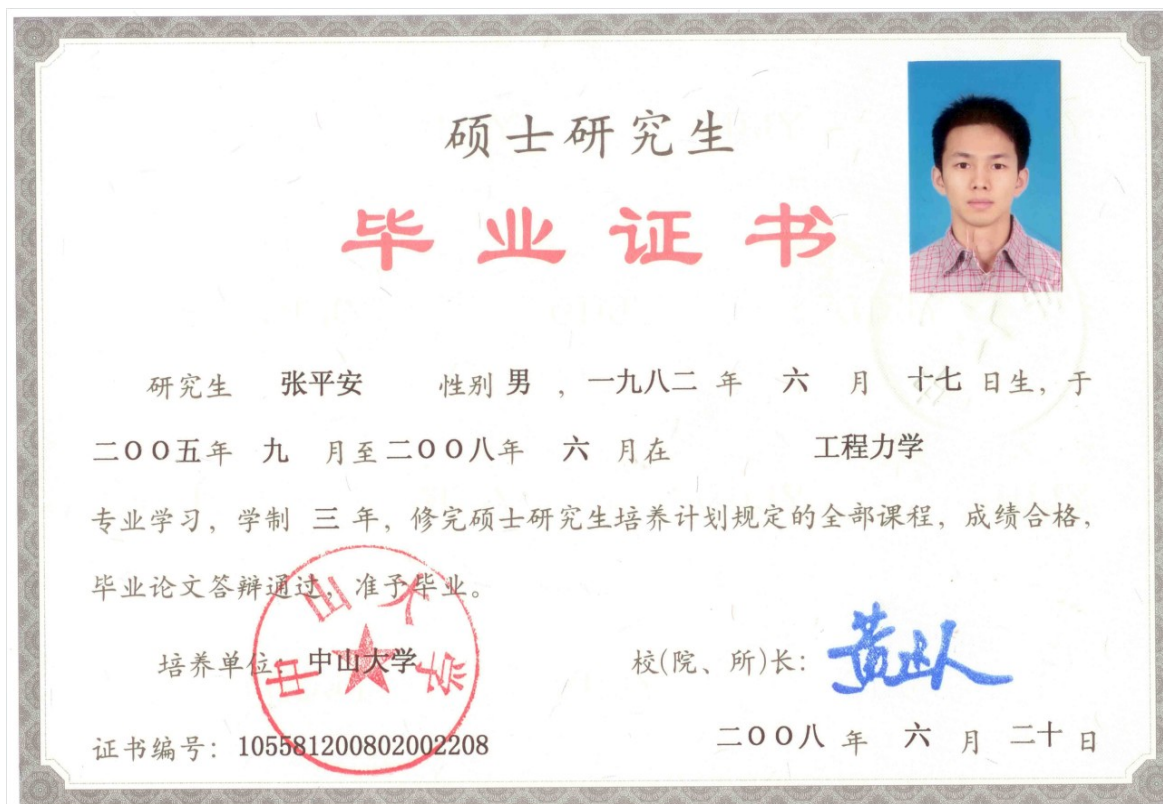 硕士研究生
毕业证书
研究生 张平安 性别 男 ，一九八二 年 六 月 十七 日生，于
二〇〇五年 九 月至 二〇〇八年 六 月在 工程力学
专业学习，学制 三 年，修完硕士研究生培养计划规定的全部课程，成绩合格，
毕业论文答辩通过，准予毕业。
培养单位 中山大学
中山大学
校(院、所)长：黄达人
证书编号：105581200802002208
二〇〇八 年 六 月 二十 日